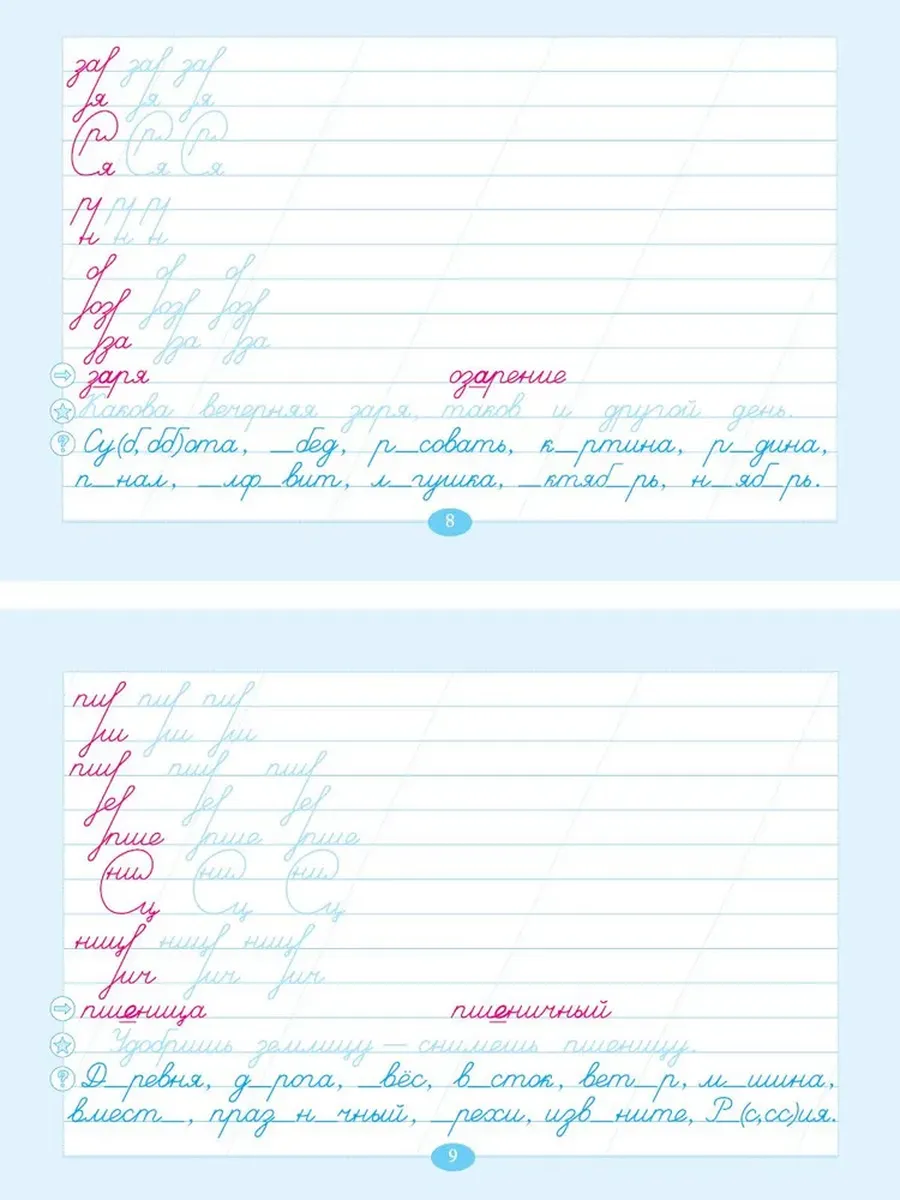 зар зар зар
я я я
р р р
я я я
ру ру ру
н н н
о о о
роз роз роз
за за за
заря озарение
Какова вечерняя заря, таков и другой день.
Су(б, бб)ота, _бед, р_совать, к_ртина, р_дина,
п_нал, _лф_вит, л_гушка, _ктяб_рь, н_яб_рь.
8
пш пш пш
ш ш ш
пш пш пш
е е е
пше пше пше
ни ни ни
ц ц ц
нищ нищ нищ
ич ич ич
пшеница пшеничный
Удобришь землицу — снимешь пшеницу.
Д_ревня, д_рога, _вёс, в_сток, вет_р, м_шина,
вмест_, праз_н_чный, _рехи, изв_ните, Р_(с,сс)ия.
9